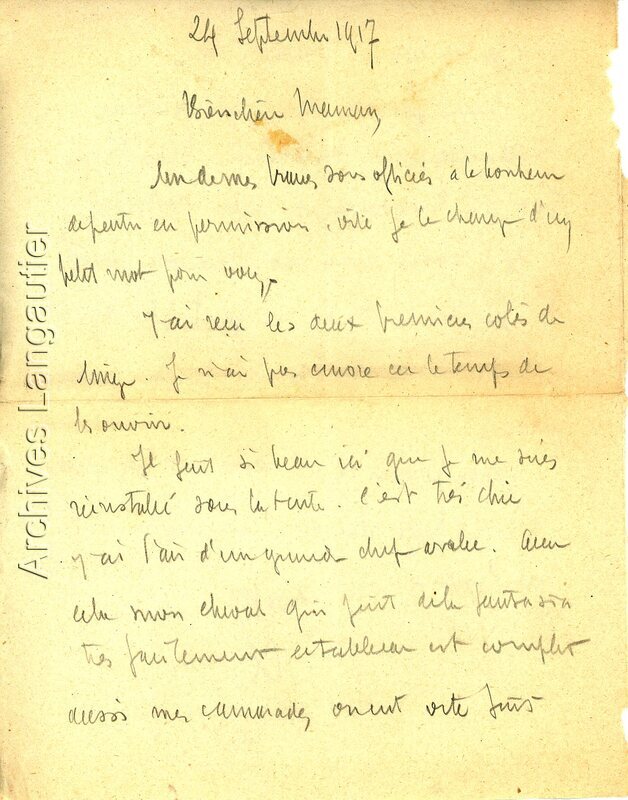 24 Septembre 1917
Bien chère Maman
Un de mes braves sous officiés a le bonheur
de partir en permission. vite je le charge d'un
petit mot pour vous.
J'ai reçu les deux premiers colis de
linge. Je n'ai pas encore eu le temps de
les ouvrir.
Il fait si beau ici que je me suis
réinstallé sous la tente. C'est très chic
j'ai l'air d'un grand chef arabe. Avec
cela mon cheval qui fait de la fantasia
très facilement et tableau est complet
mes camarades ont vite fait
Archives Langautier